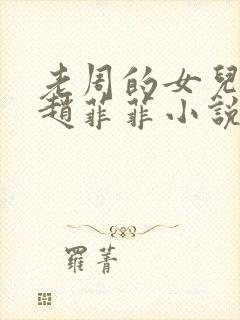 老周的女兒
趙菲菲小說
羅菁